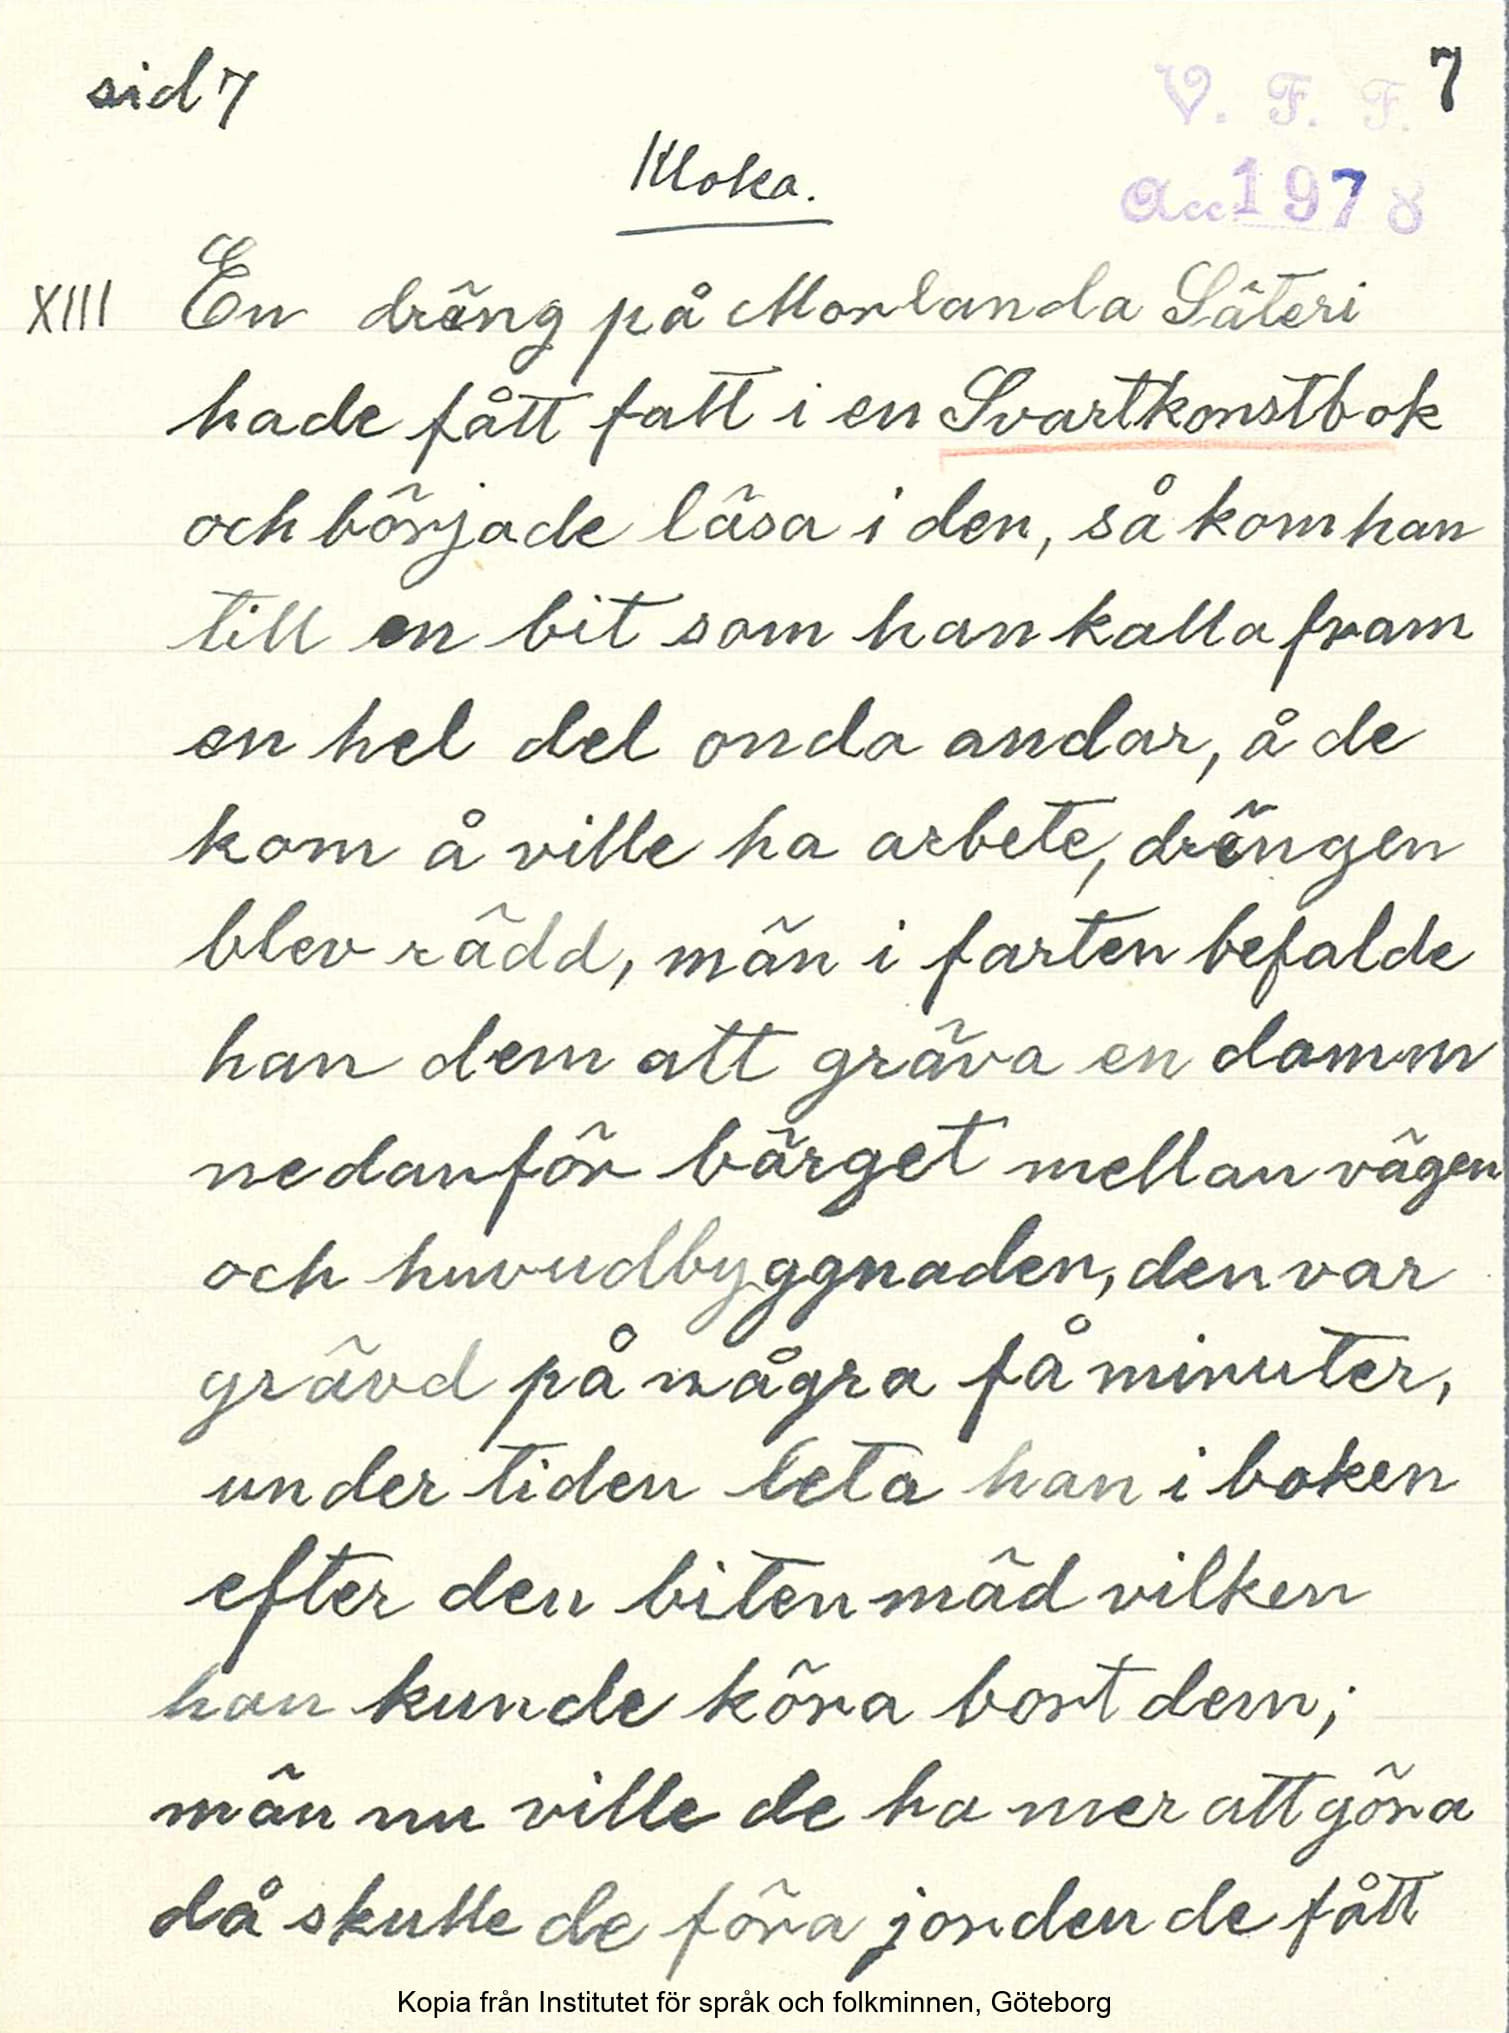 sid 7
7
V. F. F.
Acc 1978
Kloka.
XIII En dräng på Morlanda Säteri
hade fått fatt i en Svartkonstbok
och började läsa i den, så kom han
till en bit som han kalla fram
en hel del onda andar, å de
kom å ville ha arbete, drängen
blev rädd, män i farten befalde
han dem att gräva en damm
nedanför bärget mellan vägen
och huvudbyggnaden, den var
grävd på några få minuter,
under tiden leta han i boken
efter den biten mäd vilken
han kunde köra bort dem;
män nu ville de ha mer att göra
då skulle de föra jorden de fått
Kopia från Institutet för språk och folkminnen, Göteborg